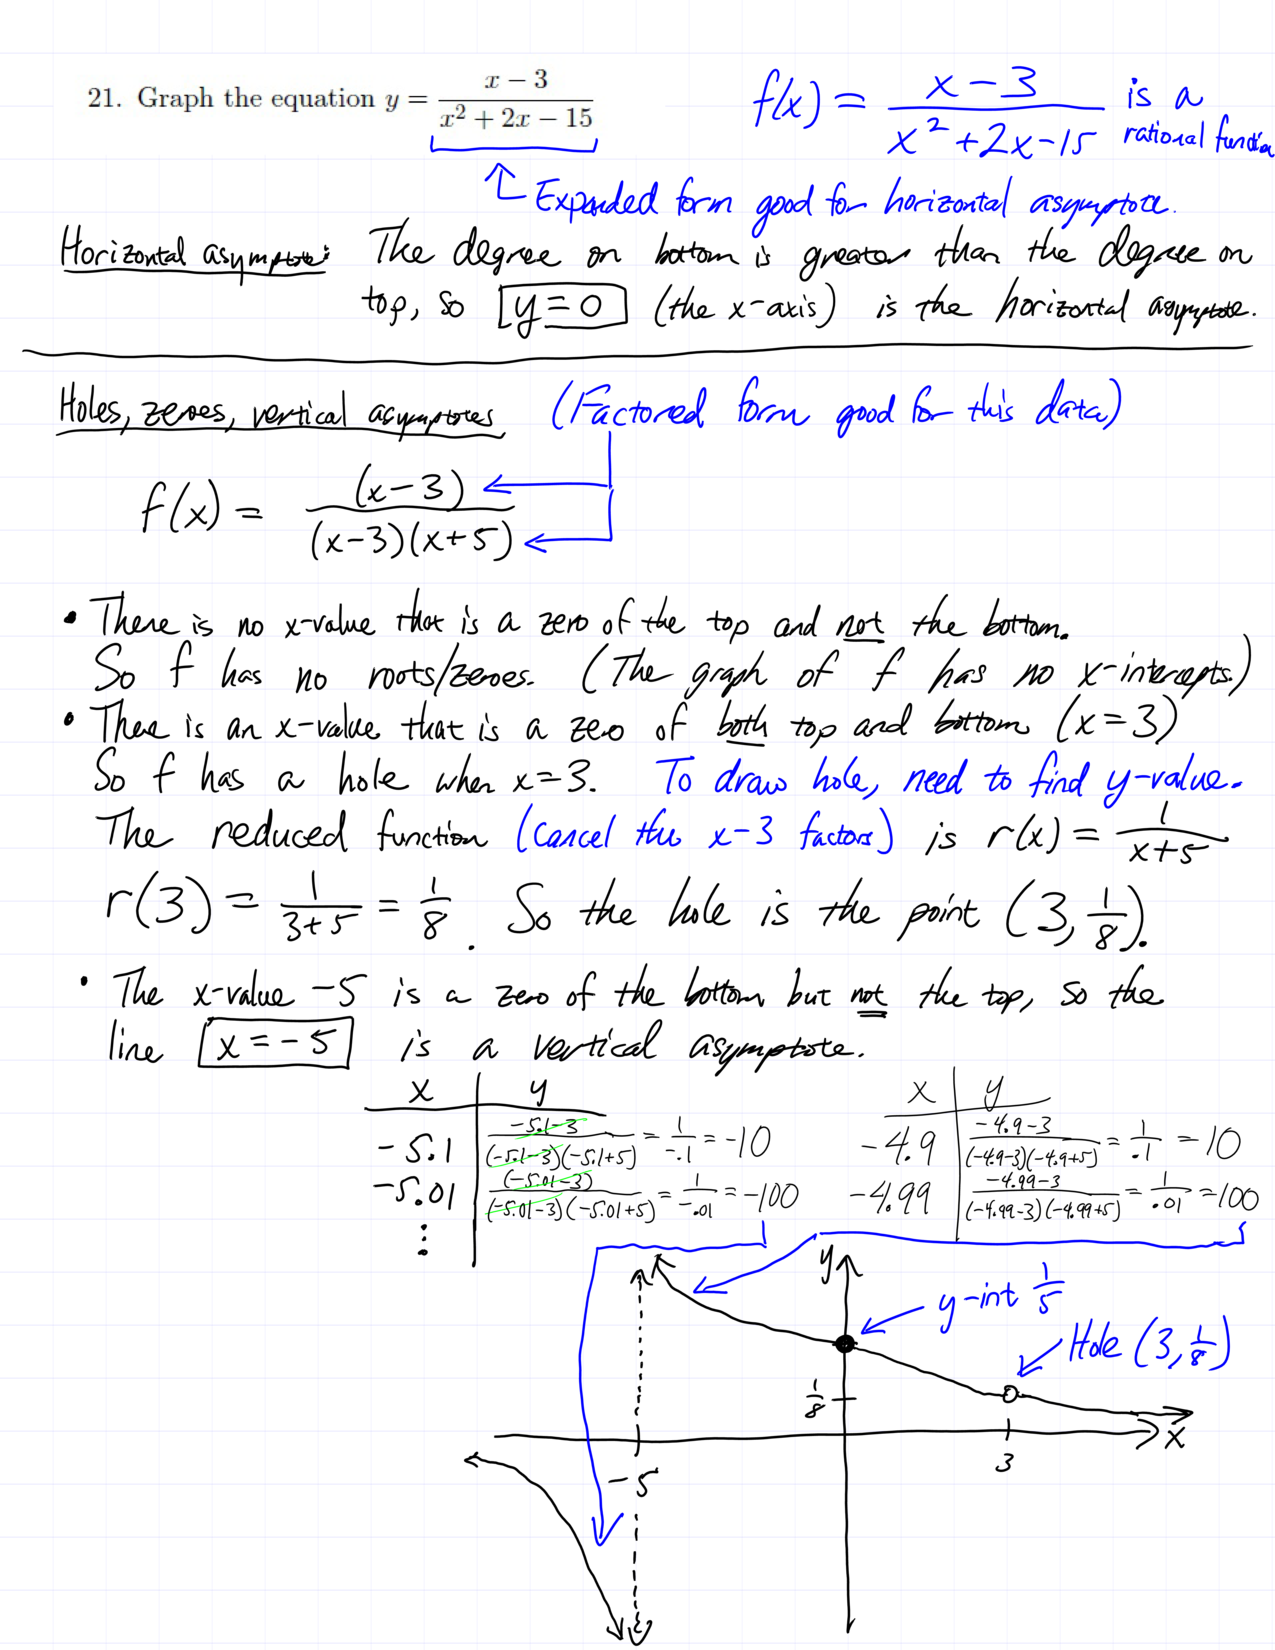 21. Graph the equation y = (x − 3)/(x² + 2x − 15)
f(x) = (x − 3)/(x² + 2x − 15) is a rational functio
↑ Expanded form good for horizontal asymptote.
Horizontal asymptote: The degree on bottom is greater than the degree on
top, so y = 0 (the x-axis) is the horizontal asymptote.
Holes, zeroes, vertical asymptotes (Factored form good for this data)
f(x) = (x−3)/((x−3)(x+5))
• There is no x-value that is a zero of the top and not the bottom.
So f has no roots/zeroes. (The graph of f has no x-intercepts.)
• There is an x-value that is a zero of both top and bottom (x=3)
So f has a hole when x=3. To draw hole, need to find y-value.
The reduced function (cancel the x−3 factors) is r(x) = 1/(x+5)
r(3) = 1/(3+5) = 1/8. So the hole is the point (3, 1/8).
• The x-value −5 is a zero of the bottom but not the top, so the
line x = −5 is a vertical asymptote.
x y
−5.1 (−5.1−3)/((−5.1−3)(−5.1+5)) = 1/−.1 = −10
−5.01 (−5.01−3)/((−5.01−3)(−5.01+5)) = 1/−.01 = −100
⋮
x y
−4.9 (−4.9−3)/((−4.9−3)(−4.9+5)) = 1/.1 = 10
−4.99 (−4.99−3)/((−4.99−3)(−4.99+5)) = 1/.01 = 100
y
y-int 1/5
Hole (3, 1/8)
1/8
x
3
−5